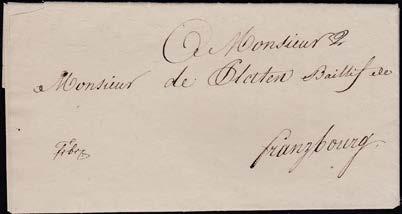 A Monsieur
Monsieur de Platen Baillif de
franzbourg.